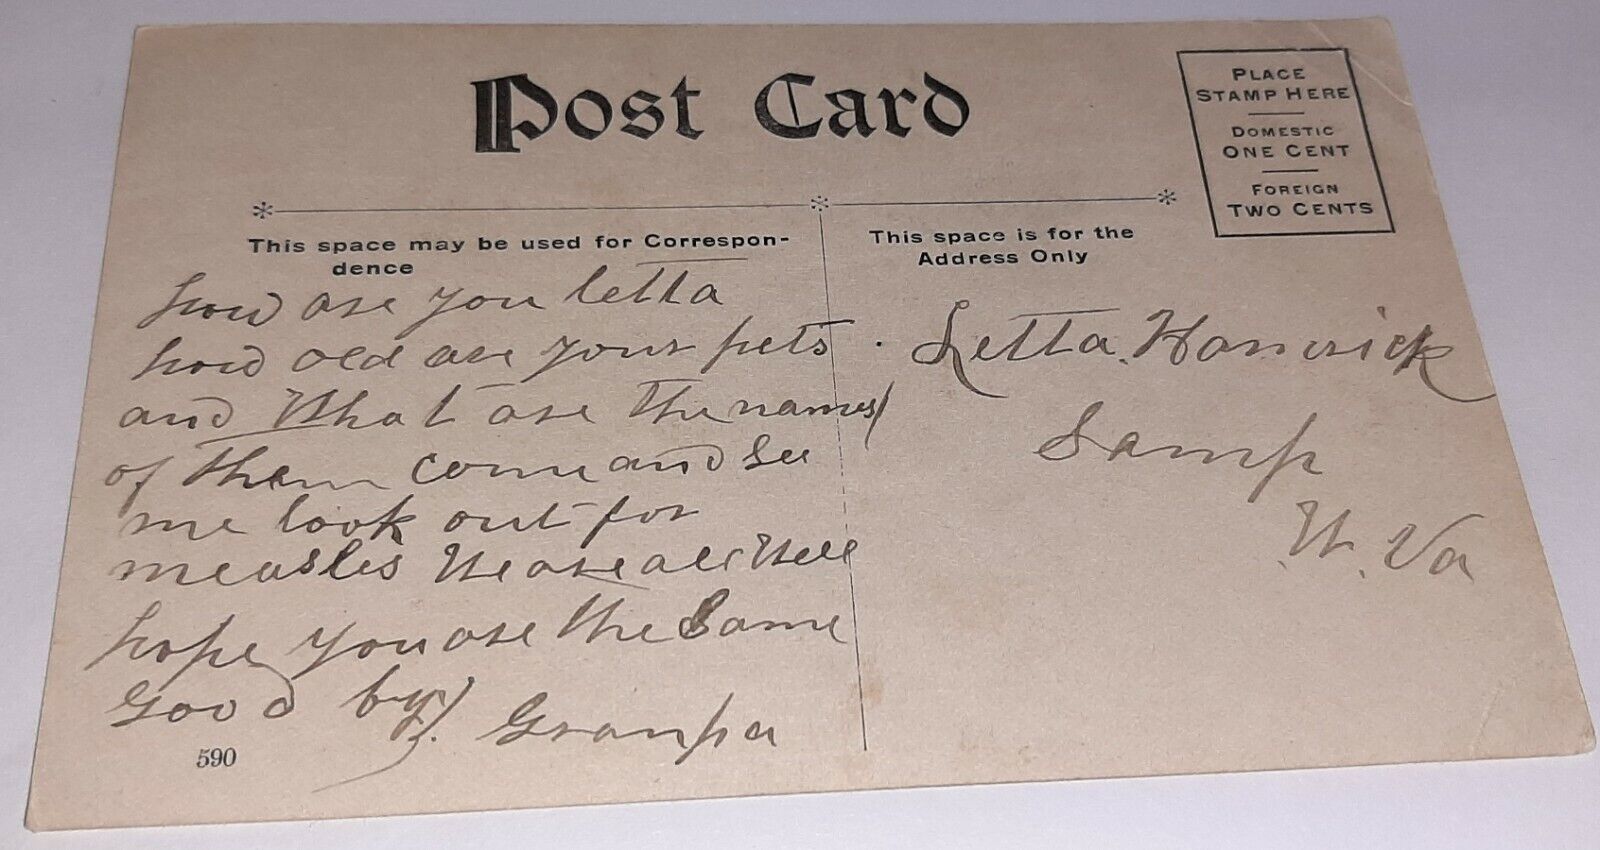 Post Card
PLACE
STAMP HERE
DOMESTIC
ONE CENT
FOREIGN
TWO CENTS
This space may be used for Correspon-
dence
how are you letta
how old are your pets
and What are the names
of them come and see
me look out for
measles We are all Well
hope you are the Same
Good by
Granpa
590
This space is for the
Address Only
Letta
Samp
W. Va